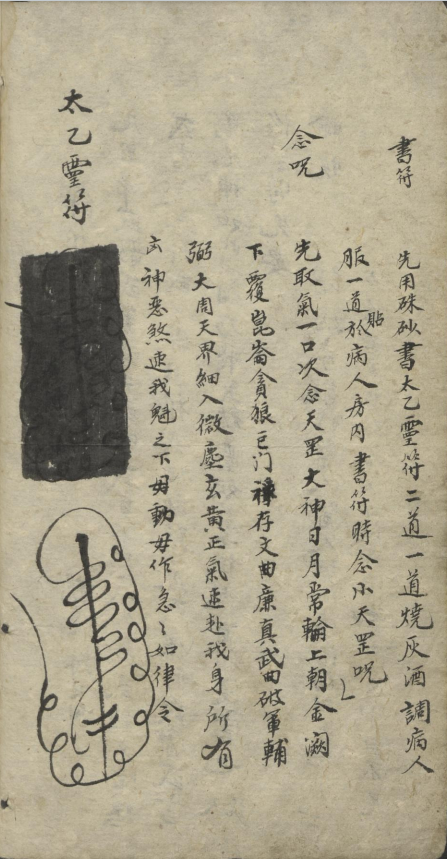 書符
先用硃砂書太乙靈符二道一道燒灰酒調病人
服一道貼於病人房内書符時念小天罡咒
念咒
先取氣一口次念天罡大神日月常輪上朝金闕
下覆崑崙貪狼巨门祿存文曲廉真武曲破軍輔
弼大周天界細入微塵玄黃正氣速赴我身所有
凶神惡煞速我魁之下毋動毋作急〻如律令
太乙靈符